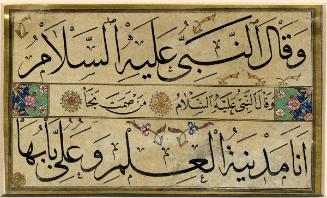 وقال النبی علیه السلام
وقال النبی علیه السلام من صمت نجا
انا مدینة العلم وعلی بابها